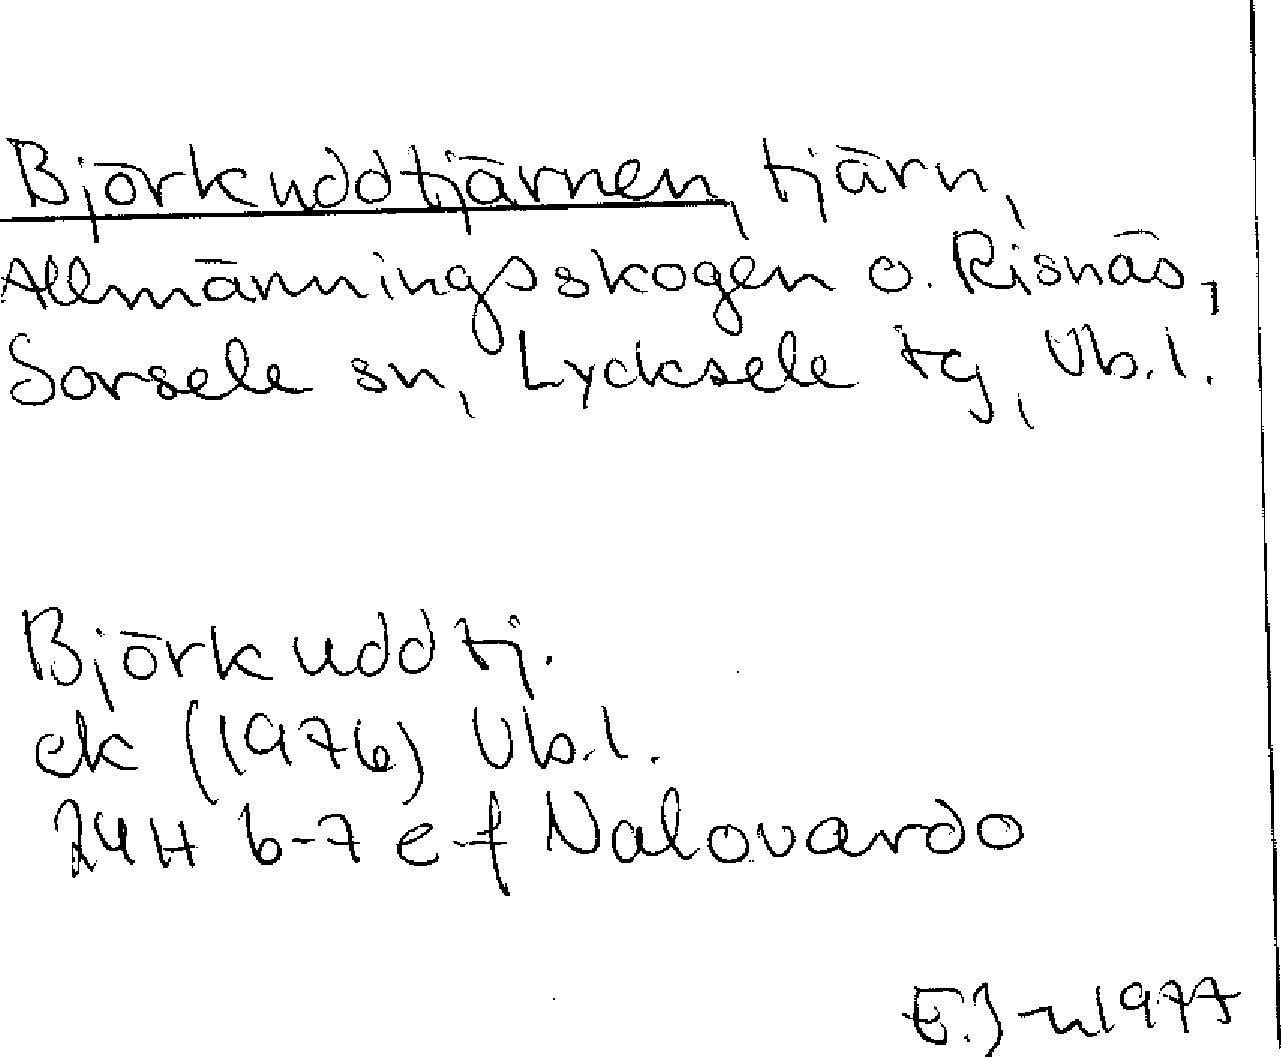 Björkuddtjärnen, tjärn,
Allmänningsskogen o. Risnäs,
Sorsele sn, Lycksele tg, Vb.l.
Björkuddtj.
ek (1976) Vb.l.
24H 6-7 e-f Nalovardo
E.J-n 1977